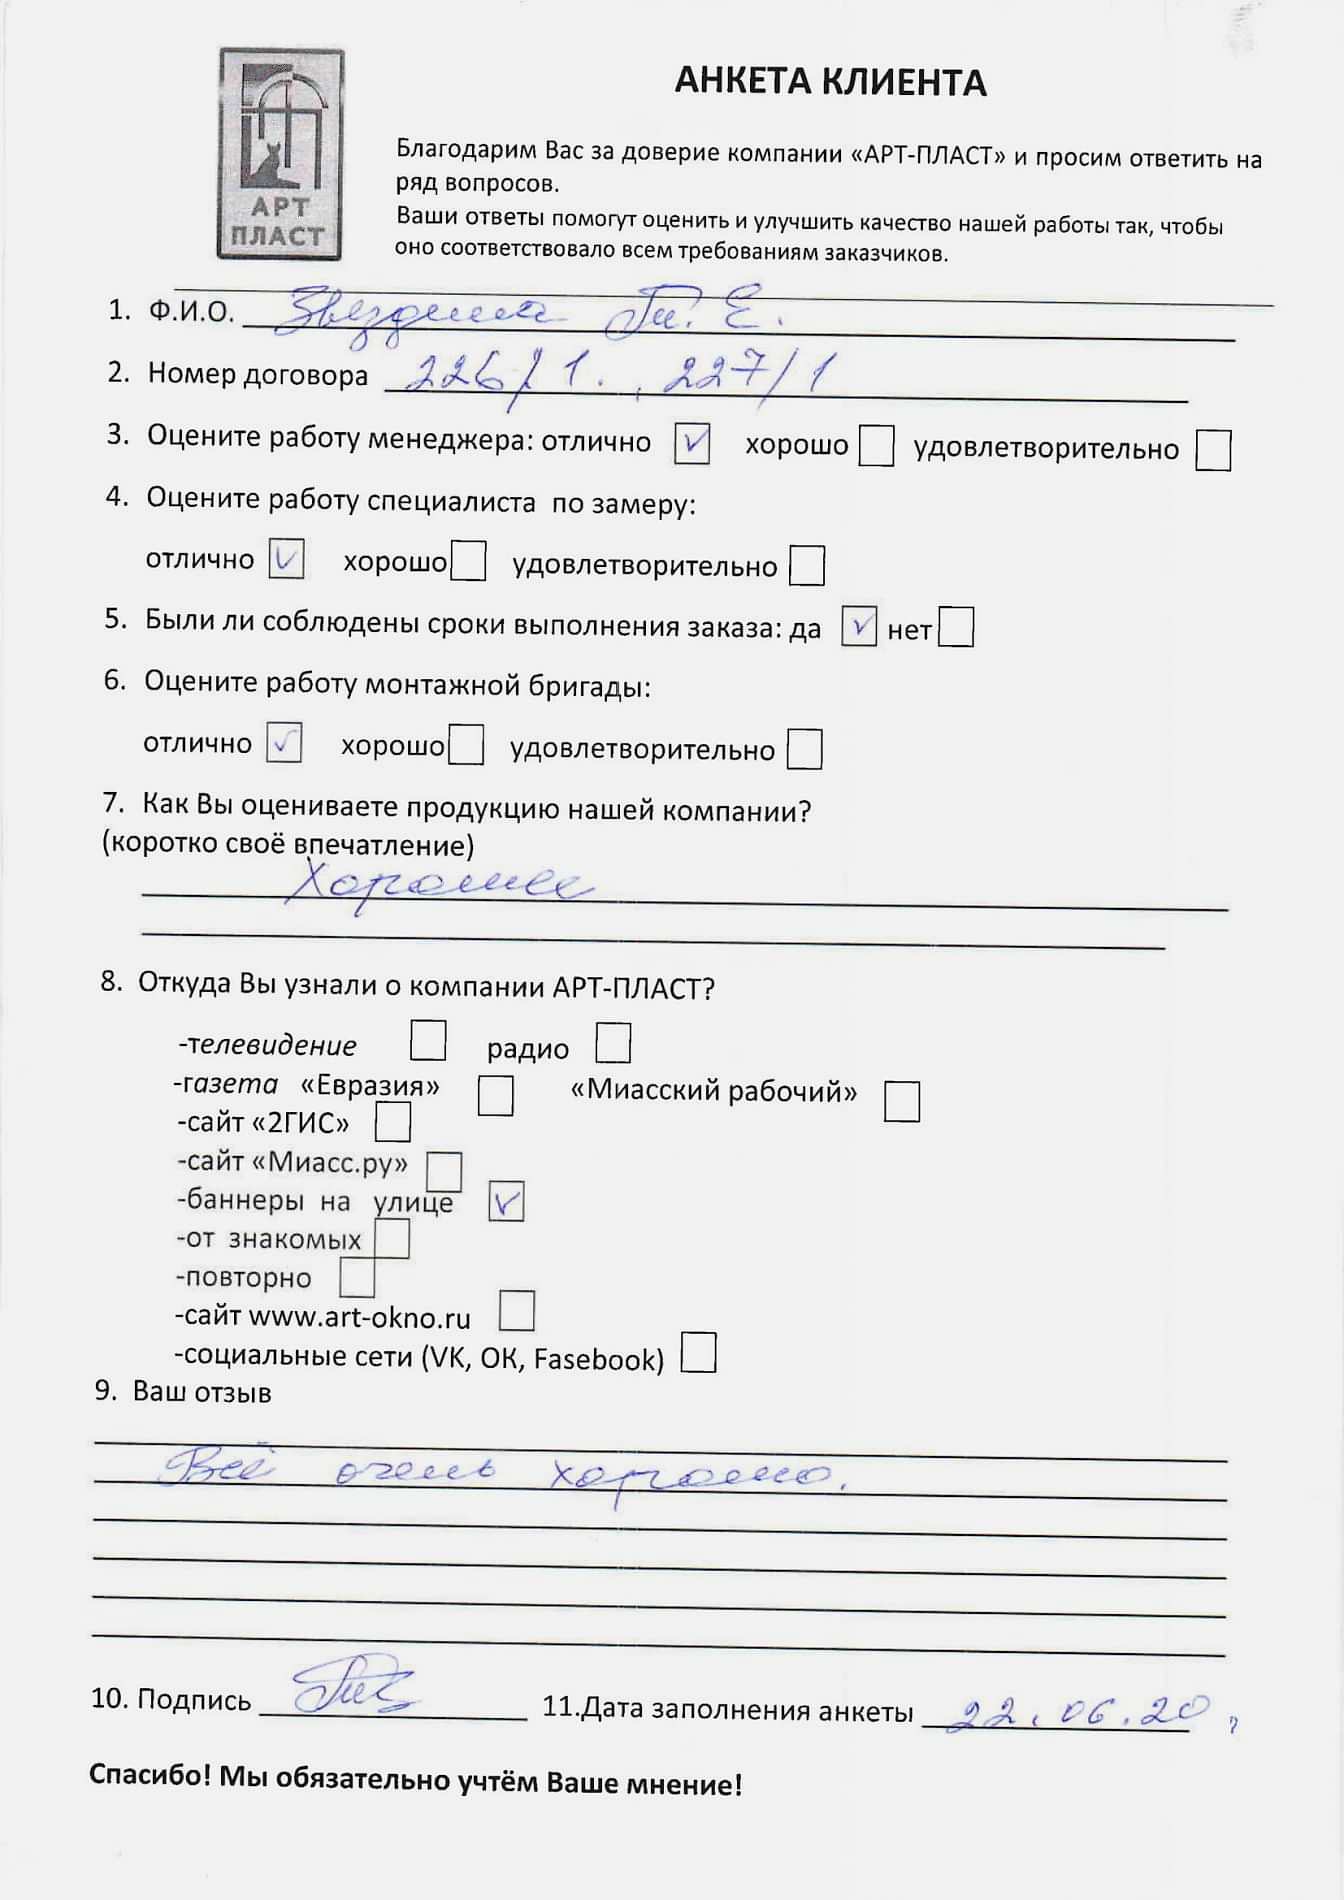 АРТ
ПЛАСТ
АНКЕТА КЛИЕНТА
Благодарим Вас за доверие компании «АРТ-ПЛАСТ» и просим ответить на
ряд вопросов.
Ваши ответы помогут оценить и улучшить качество нашей работы так, чтобы
оно соответствовало всем требованиям заказчиков.
1. Ф.И.О. Звездина Т. Е.
2. Номер договора 226/1. , 227/1
3. Оцените работу менеджера: отлично ☑ хорошо ☐ удовлетворительно ☐
4. Оцените работу специалиста по замеру:
отлично ☑ хорошо ☐ удовлетворительно ☐
5. Были ли соблюдены сроки выполнения заказа: да ☑ нет ☐
6. Оцените работу монтажной бригады:
отлично ☑ хорошо ☐ удовлетворительно ☐
7. Как Вы оцениваете продукцию нашей компании?
(коротко своё впечатление)
Хорошее
8. Откуда Вы узнали о компании АРТ-ПЛАСТ?
-телевидение ☐ радио ☐
-газета «Евразия» ☐ «Миасский рабочий» ☐
-сайт «2ГИС» ☐
-сайт «Миасс.ру» ☐
-баннеры на улице ☑
-от знакомых ☐
-повторно ☐
-сайт www.art-okno.ru ☐
-социальные сети (VK, OK, Fasebook) ☐
9. Ваш отзыв
Всё очень хорошо.
10. Подпись 11.Дата заполнения анкеты 22.06.20
Спасибо! Мы обязательно учтём Ваше мнение!